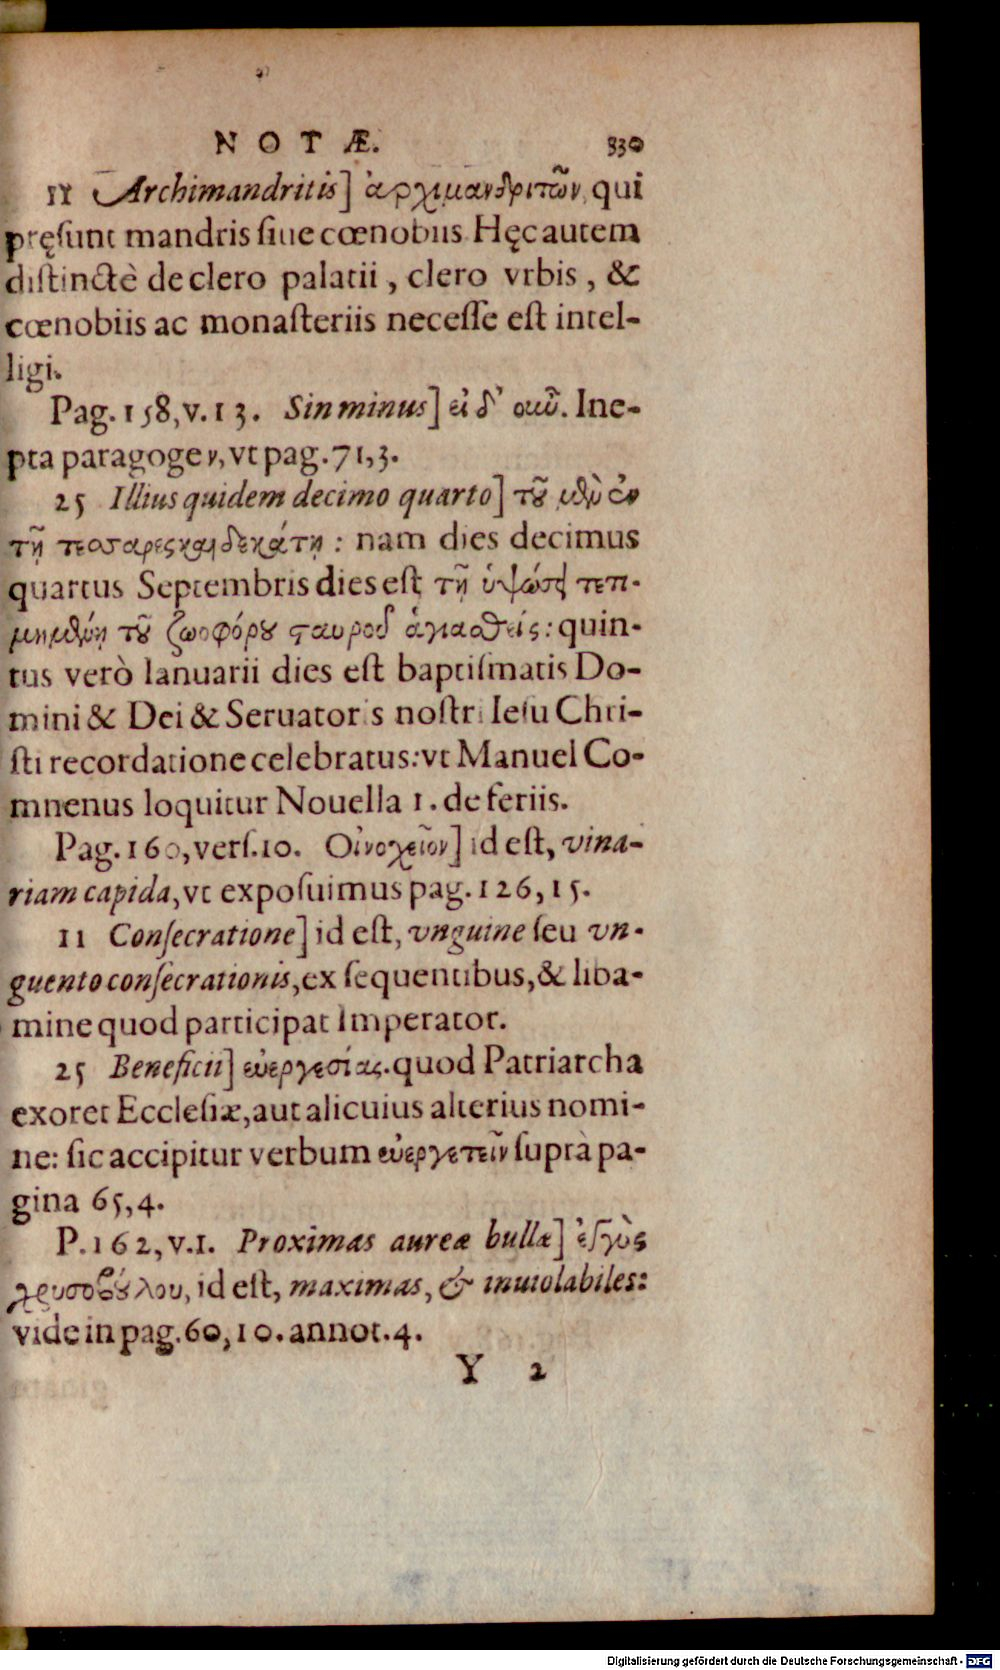 NOTÆ. 339
11 Archimandritis] ἀρχιμανδριτῶν, qui
pręsunt mandris siue cœnobiis. Hęc autem
distinctè de clero palatii, clero vrbis, &
cœnobiis ac monasteriis necesse est intel-
ligi.
Pag. 158, v. 13. Sin minus] εἰ δ' οὐκ. Ine-
pta paragoge ν, vt pag. 71, 3.
25 Illius quidem decimo quarto] τοῦ μὲν ἐν
τῇ τεσσαρεσκαιδεκάτῃ: nam dies decimus
quartus Septembris dies est, τῇ ὑψώσει τετι-
μημένη τοῦ ζωοφόρου σταυροῦ ἁγιασθείς: quin-
tus verò Ianuarii dies est baptismatis Do-
mini & Dei & Seruatoris nostri Iesu Chri-
sti recordatione celebratus: vt Manuel Co-
mnenus loquitur Nouella 1. de feriis.
Pag. 160, vers. 10. Οἰνοχεῖον] id est, vina-
riam capida, vt exposuimus pag. 126, 15.
11 Consecratione] id est, vnguine seu vn-
guento consecrationis, ex sequentibus, & liba-
mine quod participat Imperator.
25 Beneficii] εὐεργεσίας. quod Patriarcha
exoret Ecclesiæ, aut alicuius alterius nomi-
ne: sic accipitur verbum εὐεργετεῖν suprà pa-
gina 65, 4.
P. 162, v. 1. Proximas aureæ bullæ] ἐγγὺς
χρυσοβούλου, id est, maximas, & inuiolabiles:
vide in pag. 60, 10. annot. 4.
Y 2
Digitalisierung gefördert durch die Deutsche Forschungsgemeinschaft - DFG